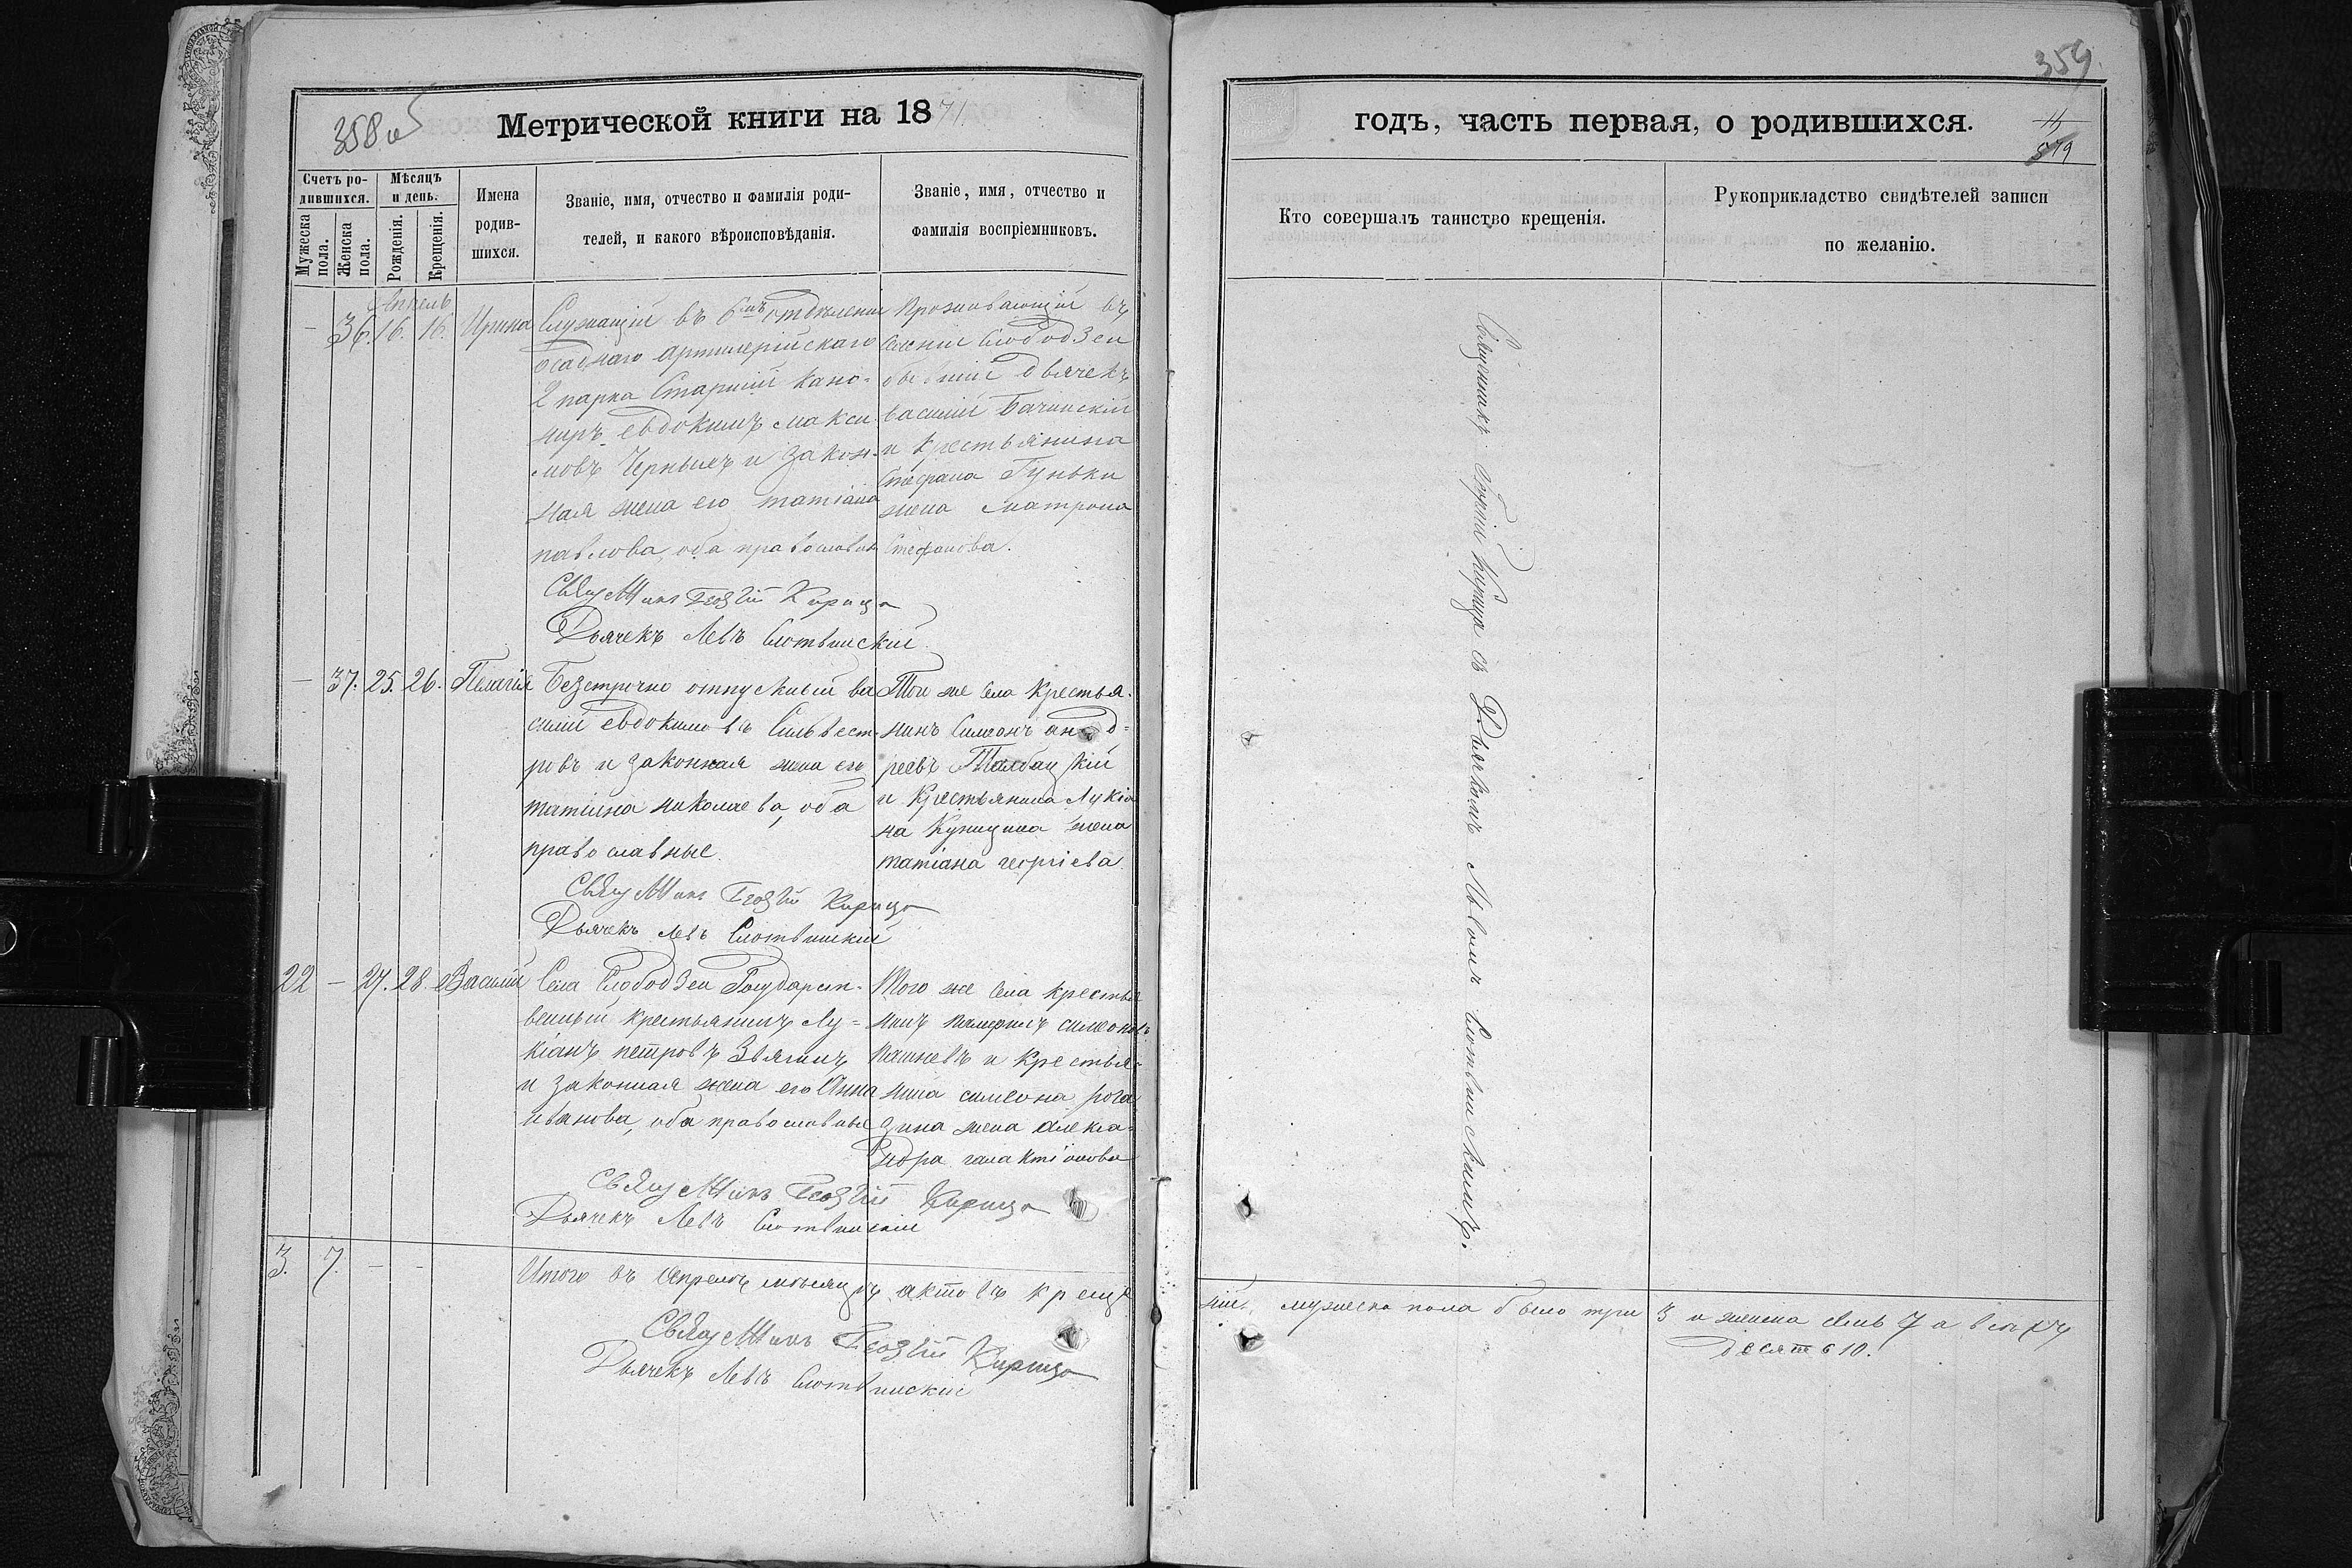 358 об
Метрической книги на 1871.
Счетъ ро-
дившихся.
Мѣсяцъ
и день.
Мужеска
пола.
Женска
пола.
Рожденія.
Крещенія.
Имена
родив-
шихся.
Званіе, имя, отчество и фамилія роди-
телей, и какого вѣроисповѣданія.
Званіе, имя, отчество и
фамилія воспріемниковъ.
Апрель
— 36. 16. 16. Ирина
Служащій въ 6мъ отдѣленіи
осаднаго артилерійскаго
2 парка Старшій кано-
ниръ евдокимъ макси-
мовъ Черныхъ и закон-
ная жена его татіана
павлова, оба православн
Проживающій въ
селеніи Слободзеи
бывшій дьячекъ
василій Бачинскій
и крестьянина
Стефана Гуньки
жена матрона
Стефанова.
Священникъ Георгій Кирица
Дьячекъ Левъ Слотвинскій
— 37. 25. 26. Пелагія
Безстрочно отпускный ва
силій евдокимовъ Сильвест-
ровъ и законная жена его
татіана николаева, оба
православные.
Той же села Крестья-
нинъ Симеонъ анд-
реевъ Талбацкій
и Крестьянина Лукіа
на Куницина жена
татіана георгіева
Священникъ Георгій Кирица
Дьячекъ Левъ Слотвинскій
22 — 27. 28. Василій
Села Слободзеи Государст-
венный крестьянинъ Лу-
кіанъ петровъ Звягинъ
и законная жена его Анна
иванова, оба православные
Того же села крестья
нинъ памфилъ симеоновъ
и Крестья-
нина симеона рога
зина жена алекса-
ндра галактіонова
Священникъ Георгій Кирица
Дьячекъ Левъ Слотвинскій
3. 7. — —
Итого въ Апрелѣ мѣсяцѣ актовъ креще
Священникъ Георгій Кирица
Дьячекъ Левъ Слотвинскій
359.
годъ, часть первая, о родившихся.
15
579
Кто совершалъ таинство крещенія.
Рукоприкладство свидѣтелей записи
по желанію.
Священникъ Георгій Кирица съ Дьячкомъ Львомъ Слотвинскимъ.
нія, мужеска пола было три 3 и женска семь 7 а всѣхъ
десять 10.